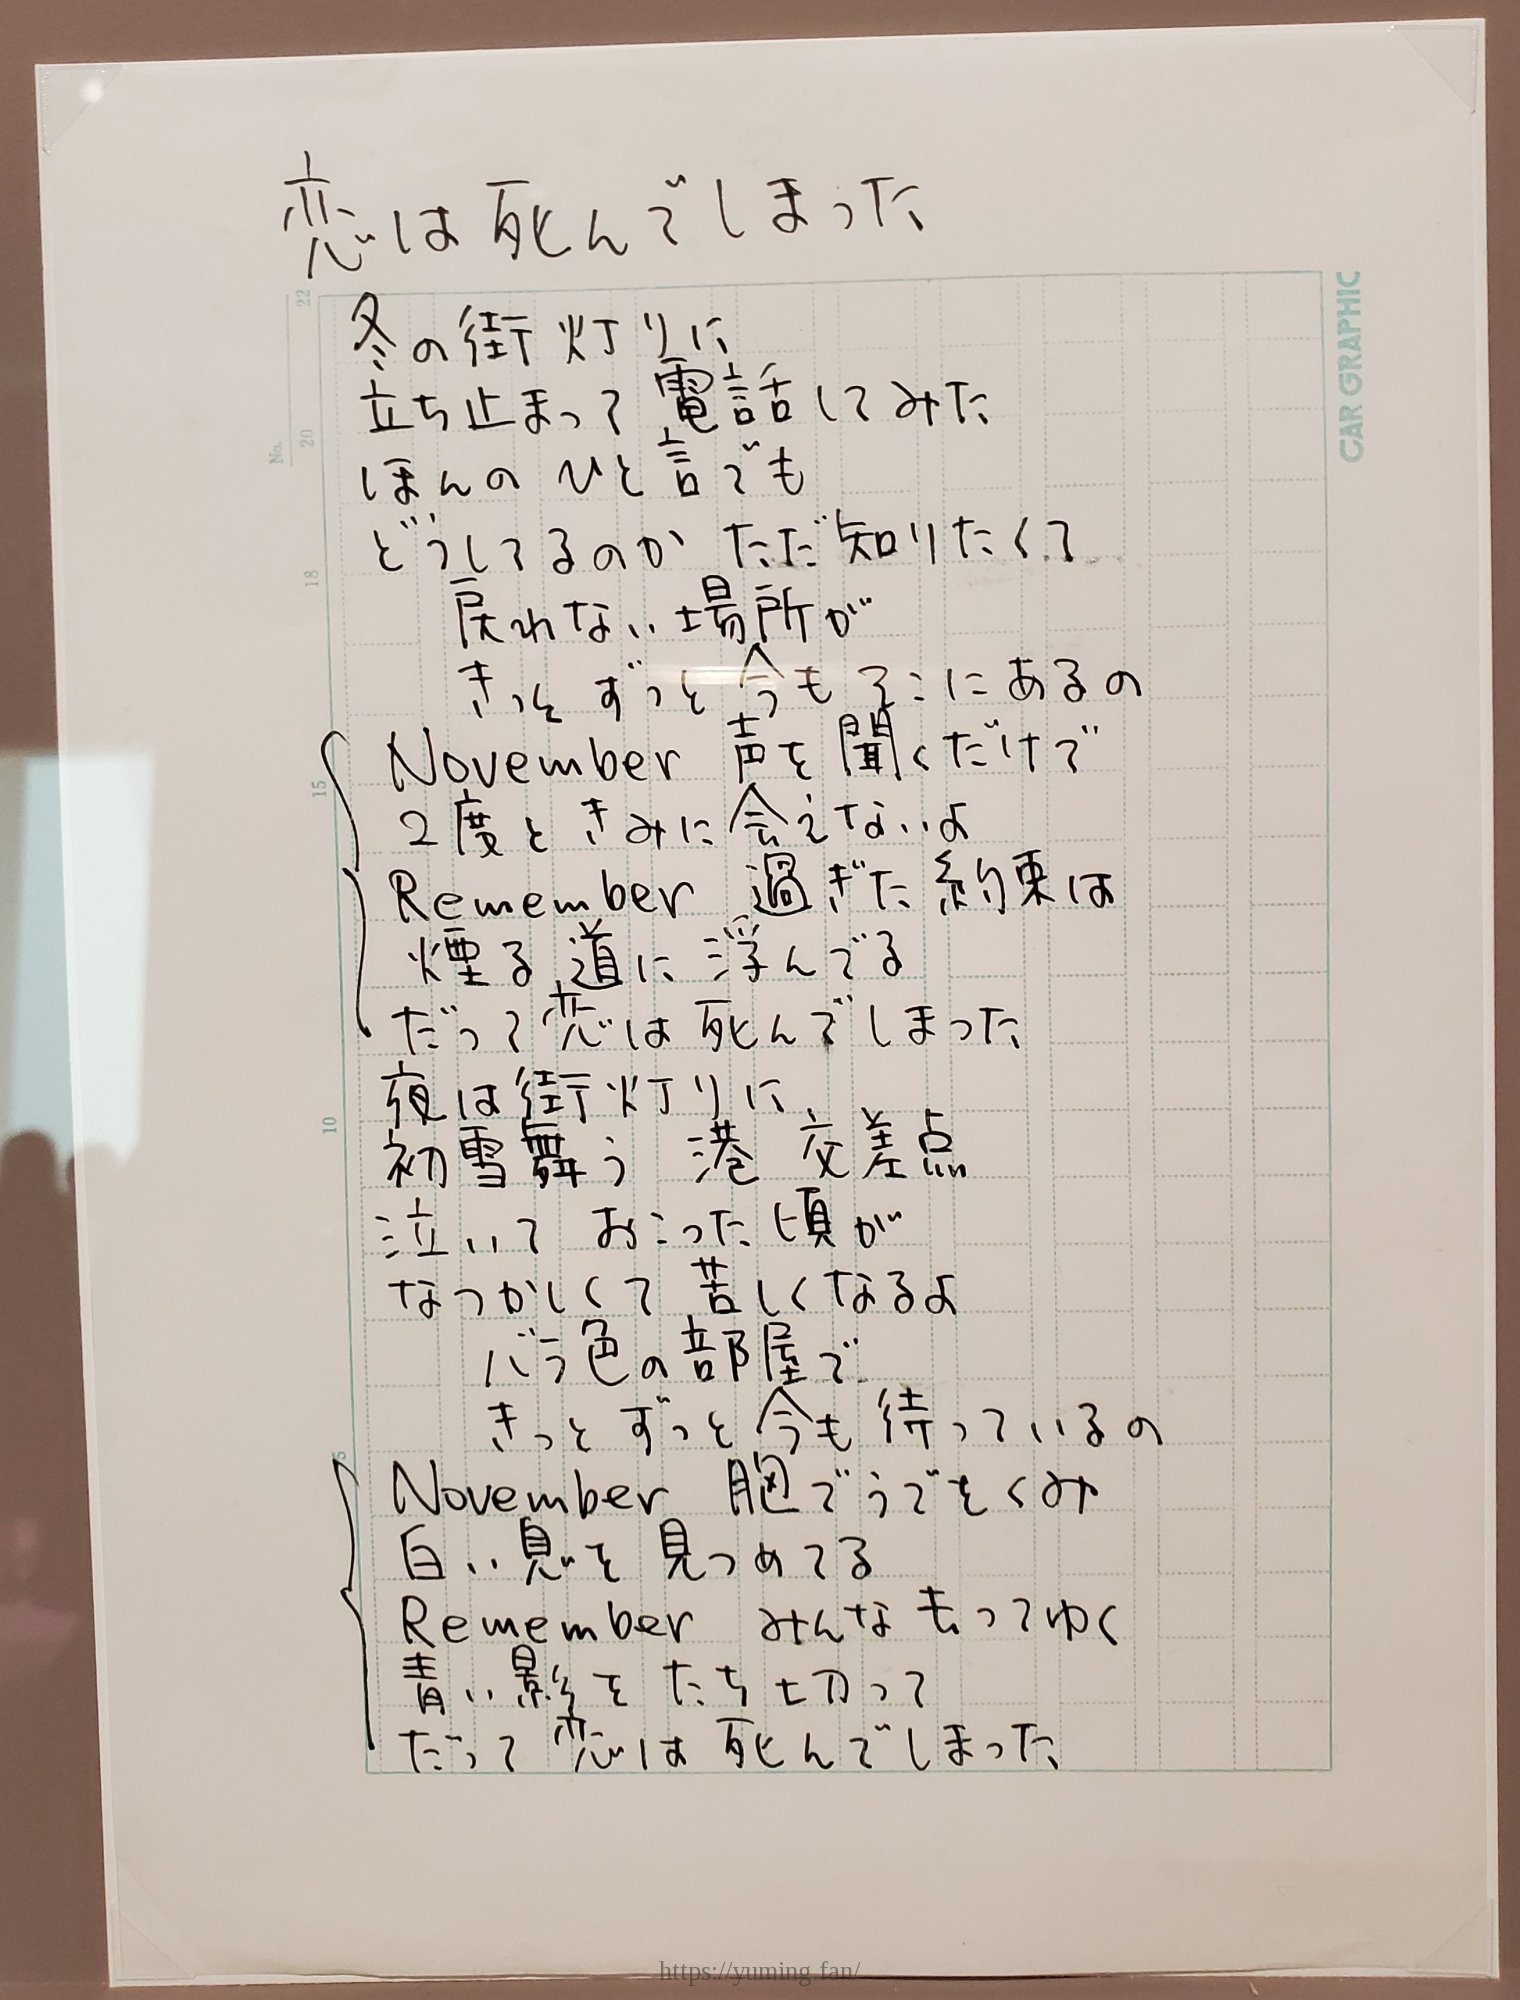 恋は死んでしまった
冬の街灯りに
立ち止まって電話してみた
ほんの ひと言でも
どうしてるのか ただ知りたくて
戻れない場所が
きっと ずっと 今も そこにあるの
November 声を聞くだけで
2度と きみに会えないよ
Remember 過ぎた約束は
煙る道に浮んでる
だって恋は死んでしまった
夜は街灯りに
初雪舞う 港 交差点
泣いて おこった頃が
なつかしくて苦しくなるよ
バラ色の部屋で
きっと ずっと今も待っているの
November 胸でうでをくみ
白い息を見つめてる
Remember みんな去ってゆく
青い影を たち切って
だって恋は死んでしまった
CAR GRAPHIC
No.
22
20
18
15
10
5
https://yuming.fan/